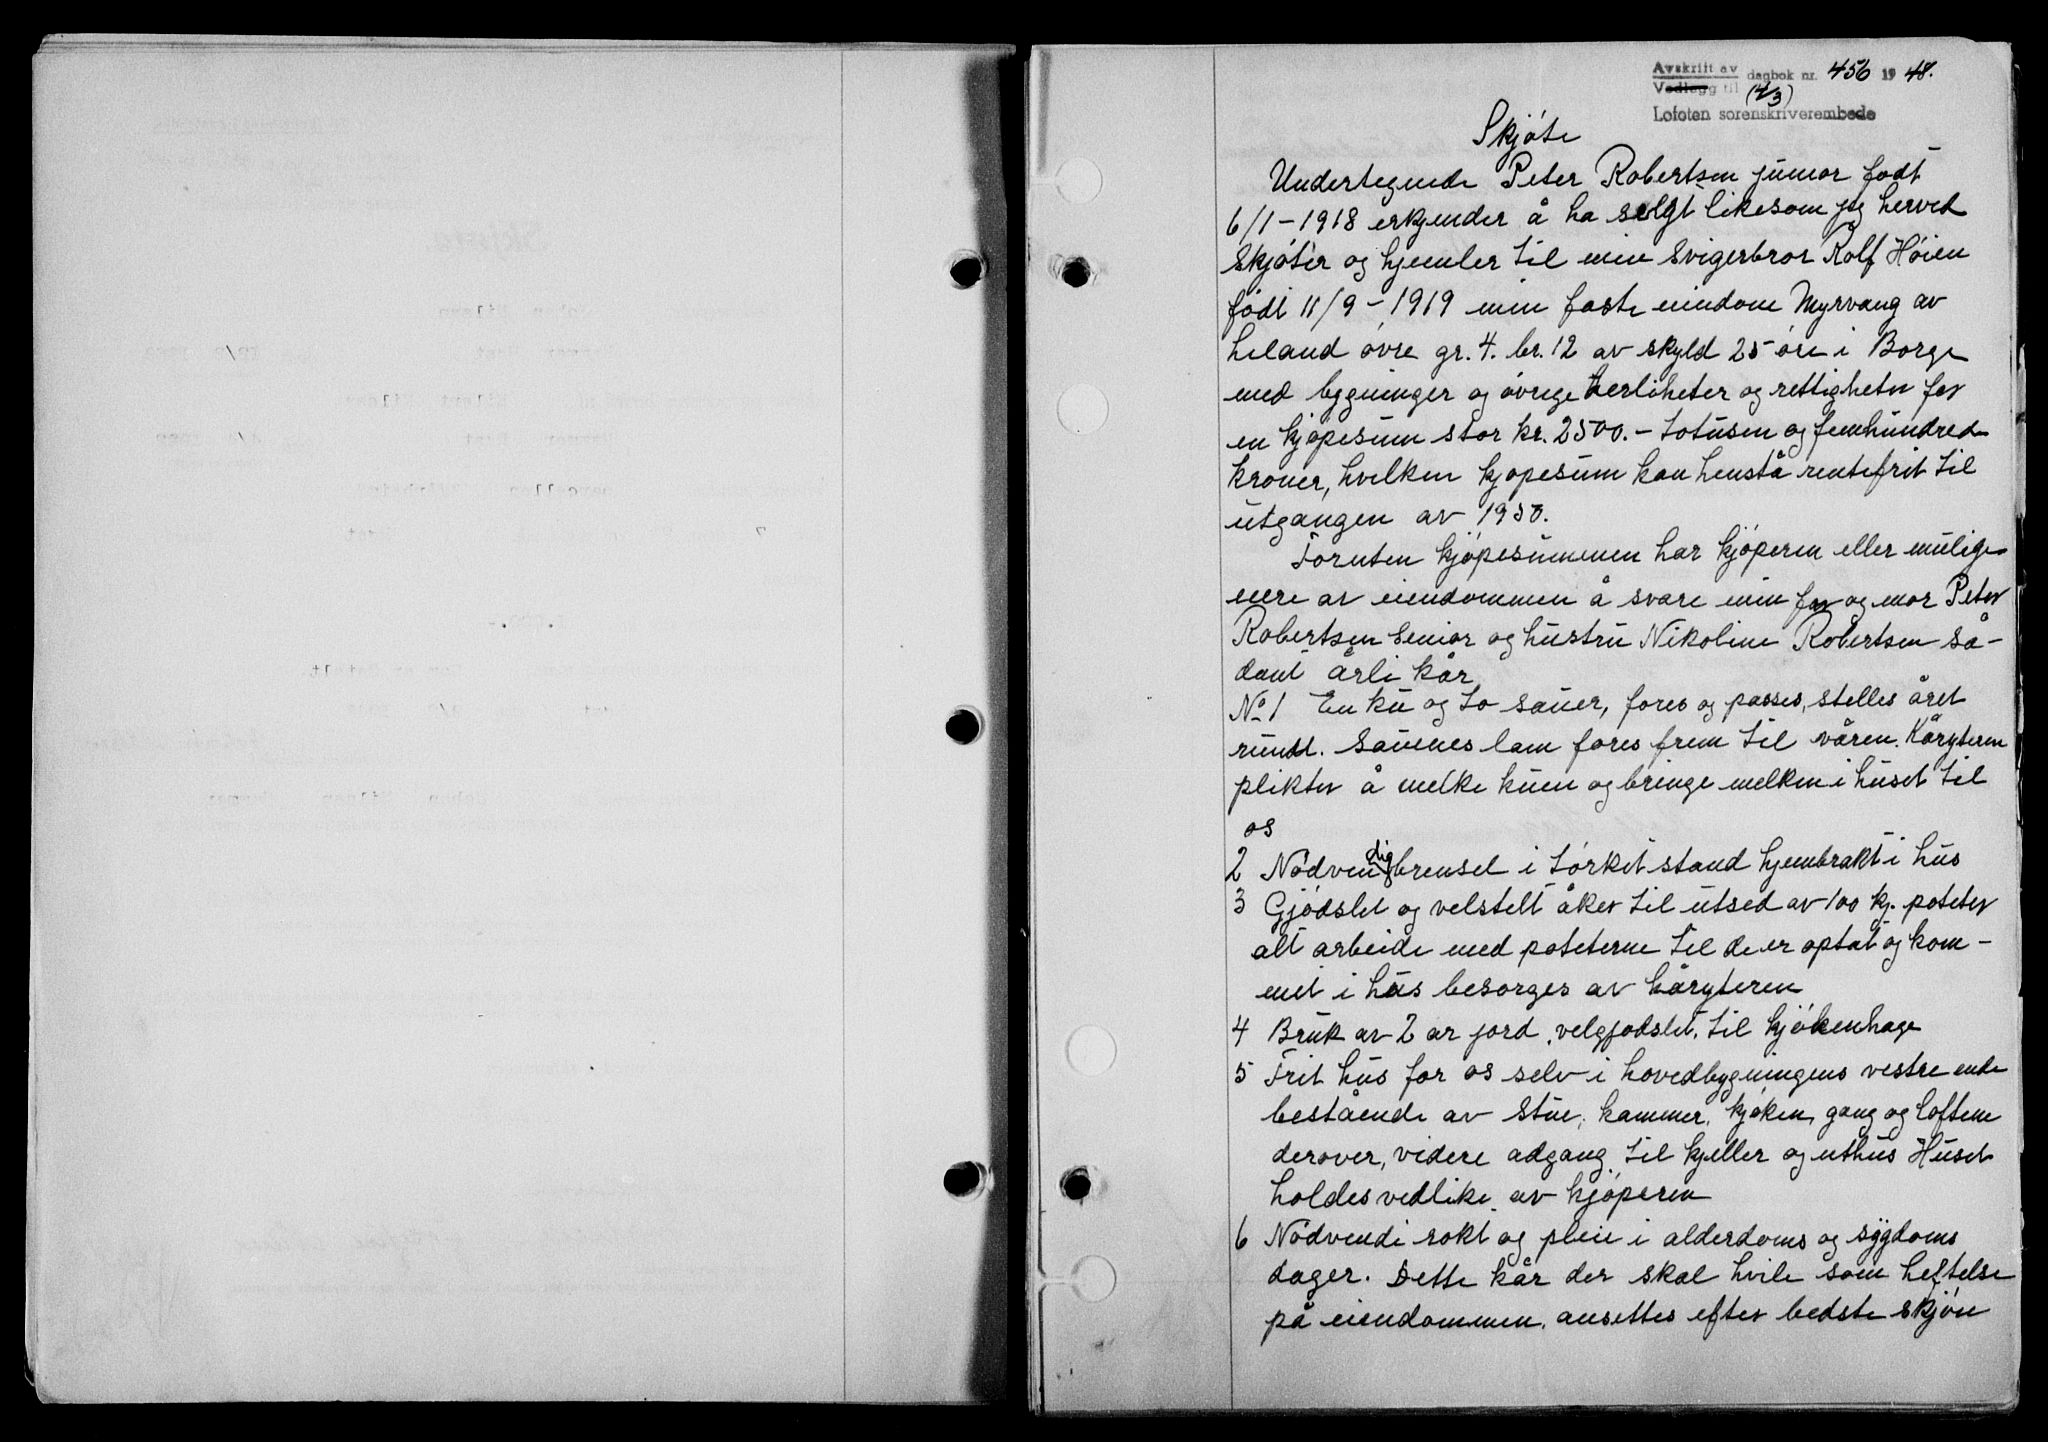 Avskrift av dagbok nr. 456 1948.
Vedlegg til (4/3)
Lofoten sorenskriverembede
Skjøte
Undertegnede Peter Robertsen junior født
6/1-1918 erkjender å ha selgt likesom jeg herved
skjøter og hjemler til min svigerbror Rolf Høien
født 11/9-1919 min faste eindom Myrvang av
Leland øvre gr. 4. br. 12 av skyld 25 øre i Borge
med bygninger og øvrige herliheter og rettigheter for
en kjøpesum stor kr. 2500.- totusen og femhundrede
kroner, hvilken kjøpesum kan henstå rentefrit til
utgangen av 1950.
Foruten kjøpesummen har kjøperen eller mulige
eiere av eiendommen å svare min far og mor Peter
Robertsen senior og hustru Nikoline Robertsen så-
dant årli kår
No 1 En ku og to sauer, fores og passes, stelles året
rundt. Sauenes lam fores frem til våren. Kåryteren
plikter å melke kuen og bringe melken i huset til
os
2 Nødvendig brensel i tørket stand hjembrakt i hus
3 Gjødslet og velstelt åker til utsed av 100 kj. poteter
alt arbeide med poteterne til de er optat og kom-
met i hus besorges av kåryteren
4 Bruk av 2 ar jord, velgjødslet, til kjøkenhage
5 Frit hus for os selv i hovedbygningens vestre ende
bestående av stue, kammer, kjøken, gang og loftene
derover, videre adgang til kjeller og uthus Huset
holdes vedlike av kjøperen
6 Nødvendi røkt og pleie i alderdoms og sygdoms
dager. Dette kår der skal hvile som heftelse
på eiendommen, ansettes efter bedste skjøn